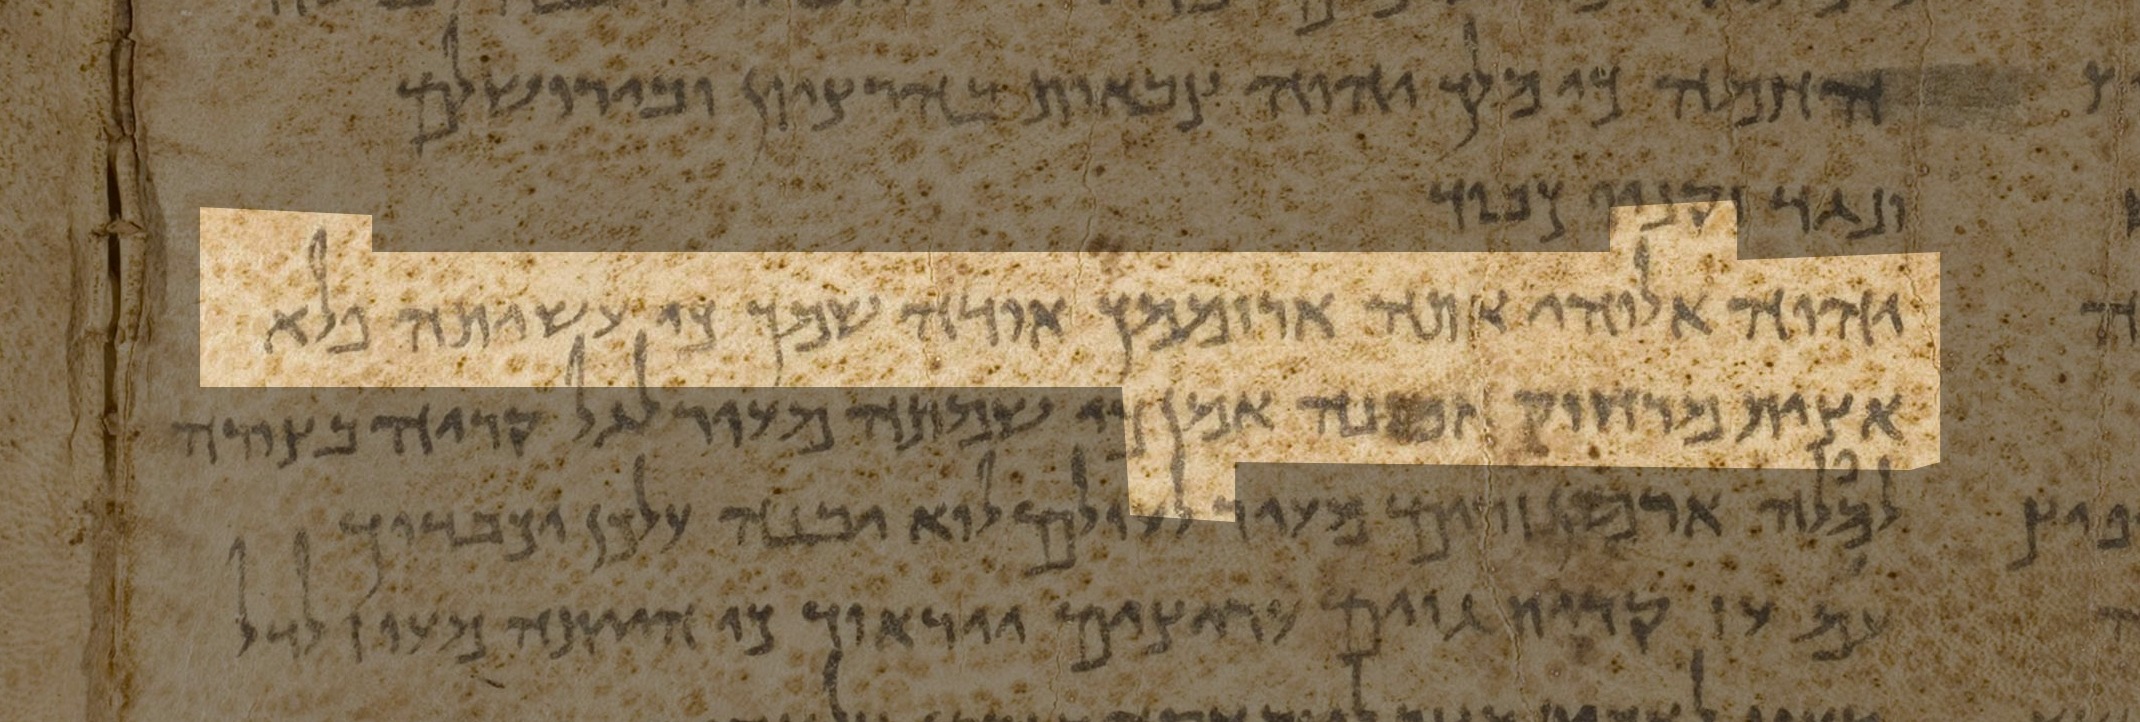 החמה כי מלך יהוה צבאות בהר ציון ובירושלם
ונגד זקניו כבוד
יהוה אלוהי אתה ארוממך אודה שמך כי עשיתה פלא
אצות מרחוק אמונה אמן כי שמתה מעיר לגל קריה בצורה
למפלה ארמון זרים מעיר לעולם לוא יבנה על כן יכבדוך
עם עז קרית גוים עריצים ייראוך כי הייתה מעוז לדל